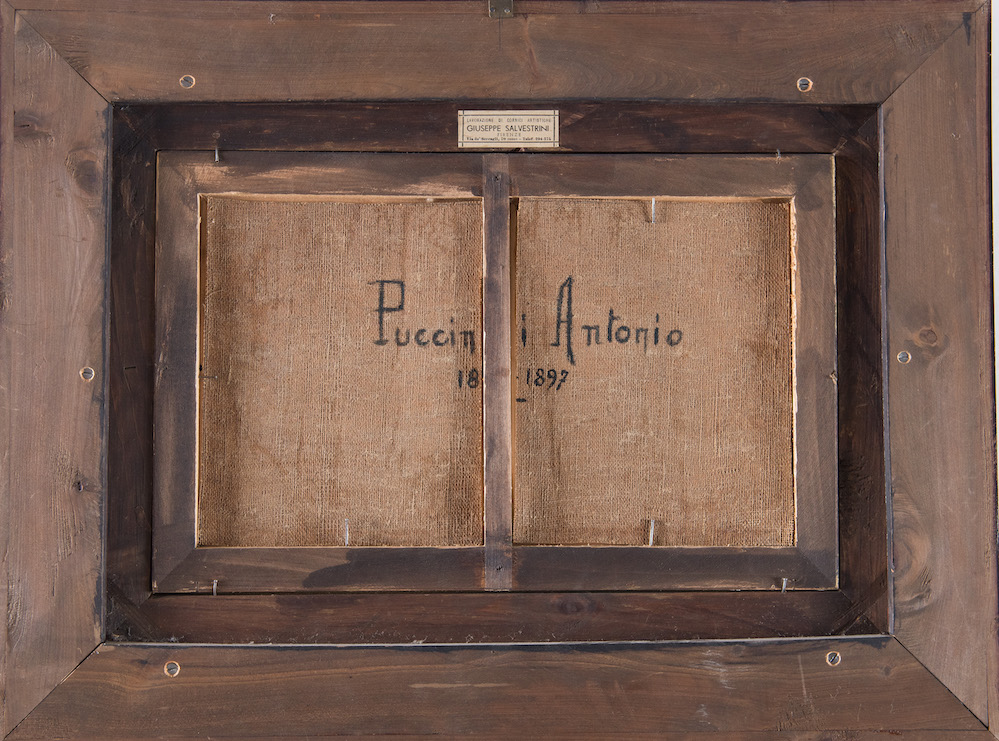 LAVORAZIONE DI CORNICI ARTISTICHE
GIUSEPPE SALVESTRINI
FIRENZE
Puccini Antonio
18 -1897